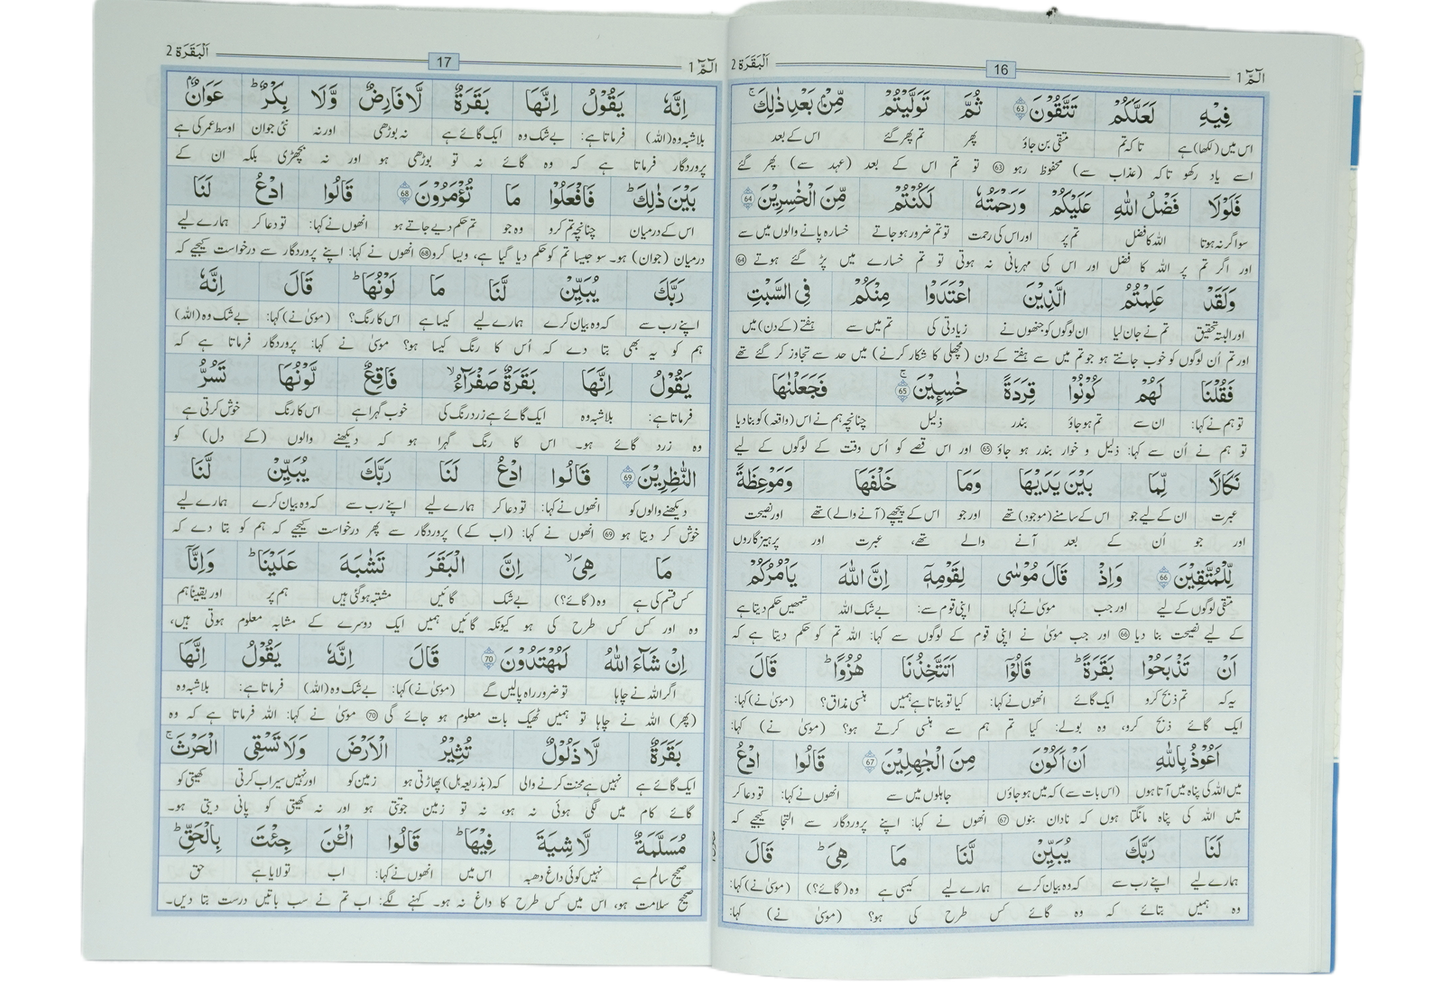 الٓمّٓ 1 16 اَلْبَقَرَة 2
فِيْهِ لَعَلَّكُمْ تَتَّقُوْنَ 63 ثُمَّ تَوَلَّيْتُمْ مِّنْۢ بَعْدِ ذٰلِكَ ۚ
اس میں (لکھا) ہے تاکہ تم متقی بن جاؤ پھر تم پھر گئے اس کے بعد
اسے یاد رکھو تاکہ (عذاب سے) محفوظ رہو 63 تو تم اس کے بعد (عہد سے) پھر گئے
فَلَوْلَا فَضْلُ اللّٰهِ عَلَيْكُمْ وَرَحْمَتُهٗ لَكُنْتُمْ مِّنَ الْخٰسِرِيْنَ 64
سو اگر نہ ہوتا اللہ کا فضل تم پر اور اس کی رحمت تو تم ضرور ہو جاتے خسارہ پانے والوں میں سے
اور اگر تم پر اللہ کا فضل اور اس کی مہربانی نہ ہوتی تو تم خسارے میں پڑ گئے ہوتے 64
وَلَقَدْ عَلِمْتُمُ الَّذِيْنَ اعْتَدَوْا مِنْكُمْ فِي السَّبْتِ
اور البتہ تحقیق تم نے جان لیا ان لوگوں کو جنھوں نے زیادتی کی تم میں سے ہفتے (کے دن) میں
اور تم اُن لوگوں کو خوب جانتے ہو جو تم میں سے ہفتے کے دن (مچھلی کا شکار کرنے) میں حد سے تجاوز کر گئے تھے
فَقُلْنَا لَهُمْ كُوْنُوْا قِرَدَةً خٰسِـِٕيْنَ ۚ 65 فَجَعَلْنٰهَا
تو ہم نے کہا: ان سے تم ہو جاؤ بندر ذلیل چنانچہ ہم نے اس (واقعہ) کو بنا دیا
تو ہم نے اُن سے کہا: ذلیل و خوار بندر ہو جاؤ 65 اور اس قصے کو اُس وقت کے لوگوں کے لیے
نَكَالًا لِّمَا بَيْنَ يَدَيْهَا وَمَا خَلْفَهَا وَمَوْعِظَةً
عبرت ان کے لیے جو اس کے سامنے (موجود) تھے اور جو اس کے پیچھے (آنے والے) تھے اور نصیحت
اور جو اُن کے بعد آنے والے تھے، عبرت اور پرہیزگاروں
لِّلْمُتَّقِيْنَ 66 وَاِذْ قَالَ مُوْسٰى لِقَوْمِهٖٓ اِنَّ اللّٰهَ يَاْمُرُكُمْ
متقی لوگوں کے لیے اور جب موسیٰ نے کہا اپنی قوم سے: بے شک اللہ تمھیں حکم دیتا ہے
کے لیے نصیحت بنا دیا 66 اور جب موسیٰ نے اپنی قوم کے لوگوں سے کہا: اللہ تم کو حکم دیتا ہے کہ
اَنْ تَذْبَحُوْا بَقَرَةً ؕ قَالُوْٓا اَتَتَّخِذُنَا هُزُوًا ؕ قَالَ
یہ کہ تم ذبح کرو ایک گائے انھوں نے کہا: کیا تو بناتا ہے ہمیں ہنسی مذاق؟ (موسیٰ نے) کہا:
ایک گائے ذبح کرو، وہ بولے: کیا تم ہم سے ہنسی کرتے ہو؟ (موسیٰ نے) کہا:
اَعُوْذُ بِاللّٰهِ اَنْ اَكُوْنَ مِنَ الْجٰهِلِيْنَ 67 قَالُوا ادْعُ
میں اللہ کی پناہ میں آتا ہوں (اس بات سے) کہ میں ہو جاؤں جاہلوں میں سے انھوں نے کہا: تو دعا کر
میں اللہ کی پناہ مانگتا ہوں کہ نادان بنوں 67 انھوں نے کہا: اپنے پروردگار سے التجا کیجیے کہ
لَنَا رَبَّكَ يُبَيِّنْ لَّنَا مَا هِيَ ؕ قَالَ
ہمارے لیے اپنے رب سے کہ وہ بیان کرے ہمارے لیے کیسی ہے وہ (گائے)؟ (موسیٰ نے) کہا:
وہ ہمیں بتائے کہ وہ گائے کس طرح کی ہو؟ (موسیٰ نے) کہا:
الٓمّٓ 1 17 اَلْبَقَرَة 2
اِنَّهٗ يَقُوْلُ اِنَّهَا بَقَرَةٌ لَّا فَارِضٌ وَّلَا بِكْرٌ ؕ عَوَانٌۢ
بلاشبہ وہ (اللہ) فرماتا ہے: بے شک وہ ایک گائے ہے نہ بوڑھی اور نہ نئی جوان اوسط عمر کی ہے
پروردگار فرماتا ہے کہ وہ گائے نہ تو بوڑھی ہو اور نہ بچھڑی بلکہ ان کے
بَيْنَ ذٰلِكَ ؕ فَافْعَلُوْا مَا تُؤْمَرُوْنَ 68 قَالُوا ادْعُ لَنَا
اس کے درمیان چنانچہ تم کرو وہ جو تم حکم دیے جاتے ہو انھوں نے کہا: تو دعا کر ہمارے لیے
درمیان (جوان) ہو۔ سو جیسا تم کو حکم دیا گیا ہے، ویسا کرو 68 انھوں نے کہا: اپنے پروردگار سے درخواست کیجیے کہ
رَبَّكَ يُبَيِّنْ لَّنَا مَا لَوْنُهَا ؕ قَالَ اِنَّهٗ
اپنے رب سے کہ وہ بیان کرے ہمارے لیے کیسا ہے اس کا رنگ؟ (موسیٰ نے) کہا: بے شک وہ (اللہ)
ہم کو یہ بھی بتا دے کہ اُس کا رنگ کیسا ہو؟ موسیٰ نے کہا: پروردگار فرماتا ہے کہ
يَقُوْلُ اِنَّهَا بَقَرَةٌ صَفْرَآءُ ۙ فَاقِعٌ لَّوْنُهَا تَسُرُّ
فرماتا ہے: بلاشبہ وہ ایک گائے ہے زرد رنگ کی خوب گہرا ہے اس کا رنگ خوش کرتی ہے
وہ زرد گائے ہو۔ اس کا رنگ گہرا ہو کہ دیکھنے والوں (کے دل) کو
النّٰظِرِيْنَ 69 قَالُوا ادْعُ لَنَا رَبَّكَ يُبَيِّنْ لَّنَا
دیکھنے والوں کو انھوں نے کہا: تو دعا کر ہمارے لیے اپنے رب سے کہ وہ بیان کرے ہمارے لیے
خوش کر دیتا ہو 69 انھوں نے کہا: (اب کے) پروردگار سے پھر درخواست کیجیے کہ ہم کو بتا دے کہ
مَا هِيَ ۙ اِنَّ الْبَقَرَ تَشٰبَهَ عَلَيْنَا ؕ وَاِنَّآ
کس قسم کی ہے وہ (گائے؟) بے شک گائیں مشتبہ ہو گئی ہیں ہم پر اور یقیناً ہم
وہ اور کس کس طرح کی ہو کیونکہ گائیں ہمیں ایک دوسرے کے مشابہ معلوم ہوتی ہیں،
اِنْ شَآءَ اللّٰهُ لَمُهْتَدُوْنَ 70 قَالَ اِنَّهٗ يَقُوْلُ اِنَّهَا
اگر اللہ نے چاہا تو ضرور راہ پا لیں گے (موسیٰ نے) کہا: بے شک وہ (اللہ) فرماتا ہے: بلاشبہ وہ
(پھر) اللہ نے چاہا تو ہمیں ٹھیک بات معلوم ہو جائے گی 70 موسیٰ نے کہا: اللہ فرماتا ہے کہ وہ
بَقَرَةٌ لَّا ذَلُوْلٌ تُثِيْرُ الْاَرْضَ وَلَا تَسْقِي الْحَرْثَ ۚ
ایک گائے ہے نہیں ہے محنت کرنے والی کہ (بذریعہ ہل) پھاڑتی ہو زمین کو اور نہیں سیراب کرتی کھیتی کو
گائے کام میں لگی ہوئی نہ ہو، نہ تو زمین جوتتی ہو اور نہ کھیتی کو پانی دیتی ہو۔
مُسَلَّمَةٌ لَّا شِيَةَ فِيْهَا ؕ قَالُوا الْـٰٔنَ جِئْتَ بِالْحَقِّ ؕ
صحیح سالم ہے نہیں کوئی داغ دھبہ اس میں انھوں نے کہا: اب تو لایا ہے حق
صحیح سلامت ہو، اس میں کسی طرح کا داغ نہ ہو۔ کہنے لگے: اب تم نے سب باتیں درست بتا دیں۔